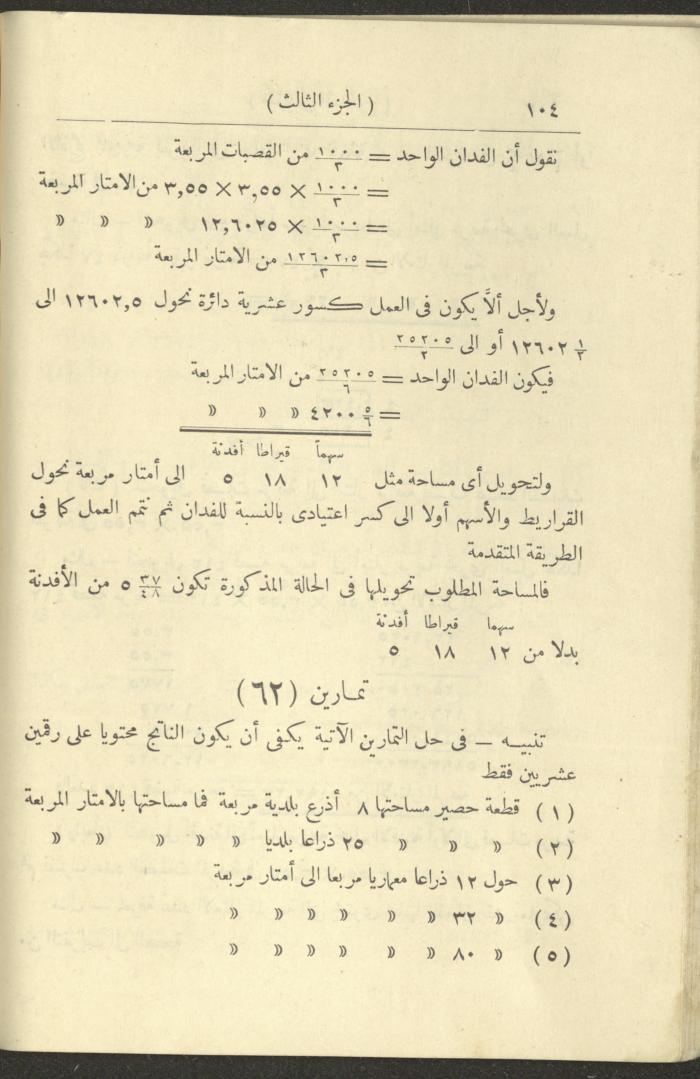 ١٠٤ (الجزء الثالث)
نقول أن الفدان الواحد = ١٠٠٠/٣ من القصبات المربعة
= ١٠٠٠/٣ × ٣,٥٥ × ٣,٥٥ من الامتار المربعة
= ١٠٠٠/٣ × ١٢,٦٠٢٥ » » »
= ١٢٦٠٢,٥/٣ من الامتار المربعة
ولأجل ألاَّ يكون فى العمل كسور عشرية دائرة نحول ١٢٦٠٢,٥ الى
١٢٦٠٢ ١/٢ أو الى ٢٥٢٠٥/٢
فيكون الفدان الواحد = ٢٥٢٠٥/٦ من الامتار المربعة
= ٤٢٠٠ ٥/٦ » » »
سهماً قيراطا أفدنة
ولتحويل أى مساحة مثل ١٢ ١٨ ٥ الى أمتار مربعة نحول
القراريط والأسهم أولا الى كسر اعتيادى بالنسبة للفدان ثم نتمم العمل كما فى
الطريقة المتقدمة
فالمساحة المطلوب تحويلها فى الحالة المذكورة تكون ٥ ٣٧/٤٨ من الأفدنة
سهما قيراطا أفدنة
بدلا من ١٢ ١٨ ٥
تمارين (٦٢)
تنبيــه — فى حل التمارين الآتية يكفى أن يكون الناتج محتويا على رقمين
عشريين فقط
(١) قطعة حصير مساحتها ٨ أذرع بلدية مربعة فما مساحتها بالامتار المربعة
(٢) » » » ٢٥ ذراعا بلديا » » » » »
(٣) حول ١٢ ذراعا معماريا مربعا الى أمتار مربعة
(٤) » ٣٢ » » » » » »
(٥) » ٨٠ » » » » » »